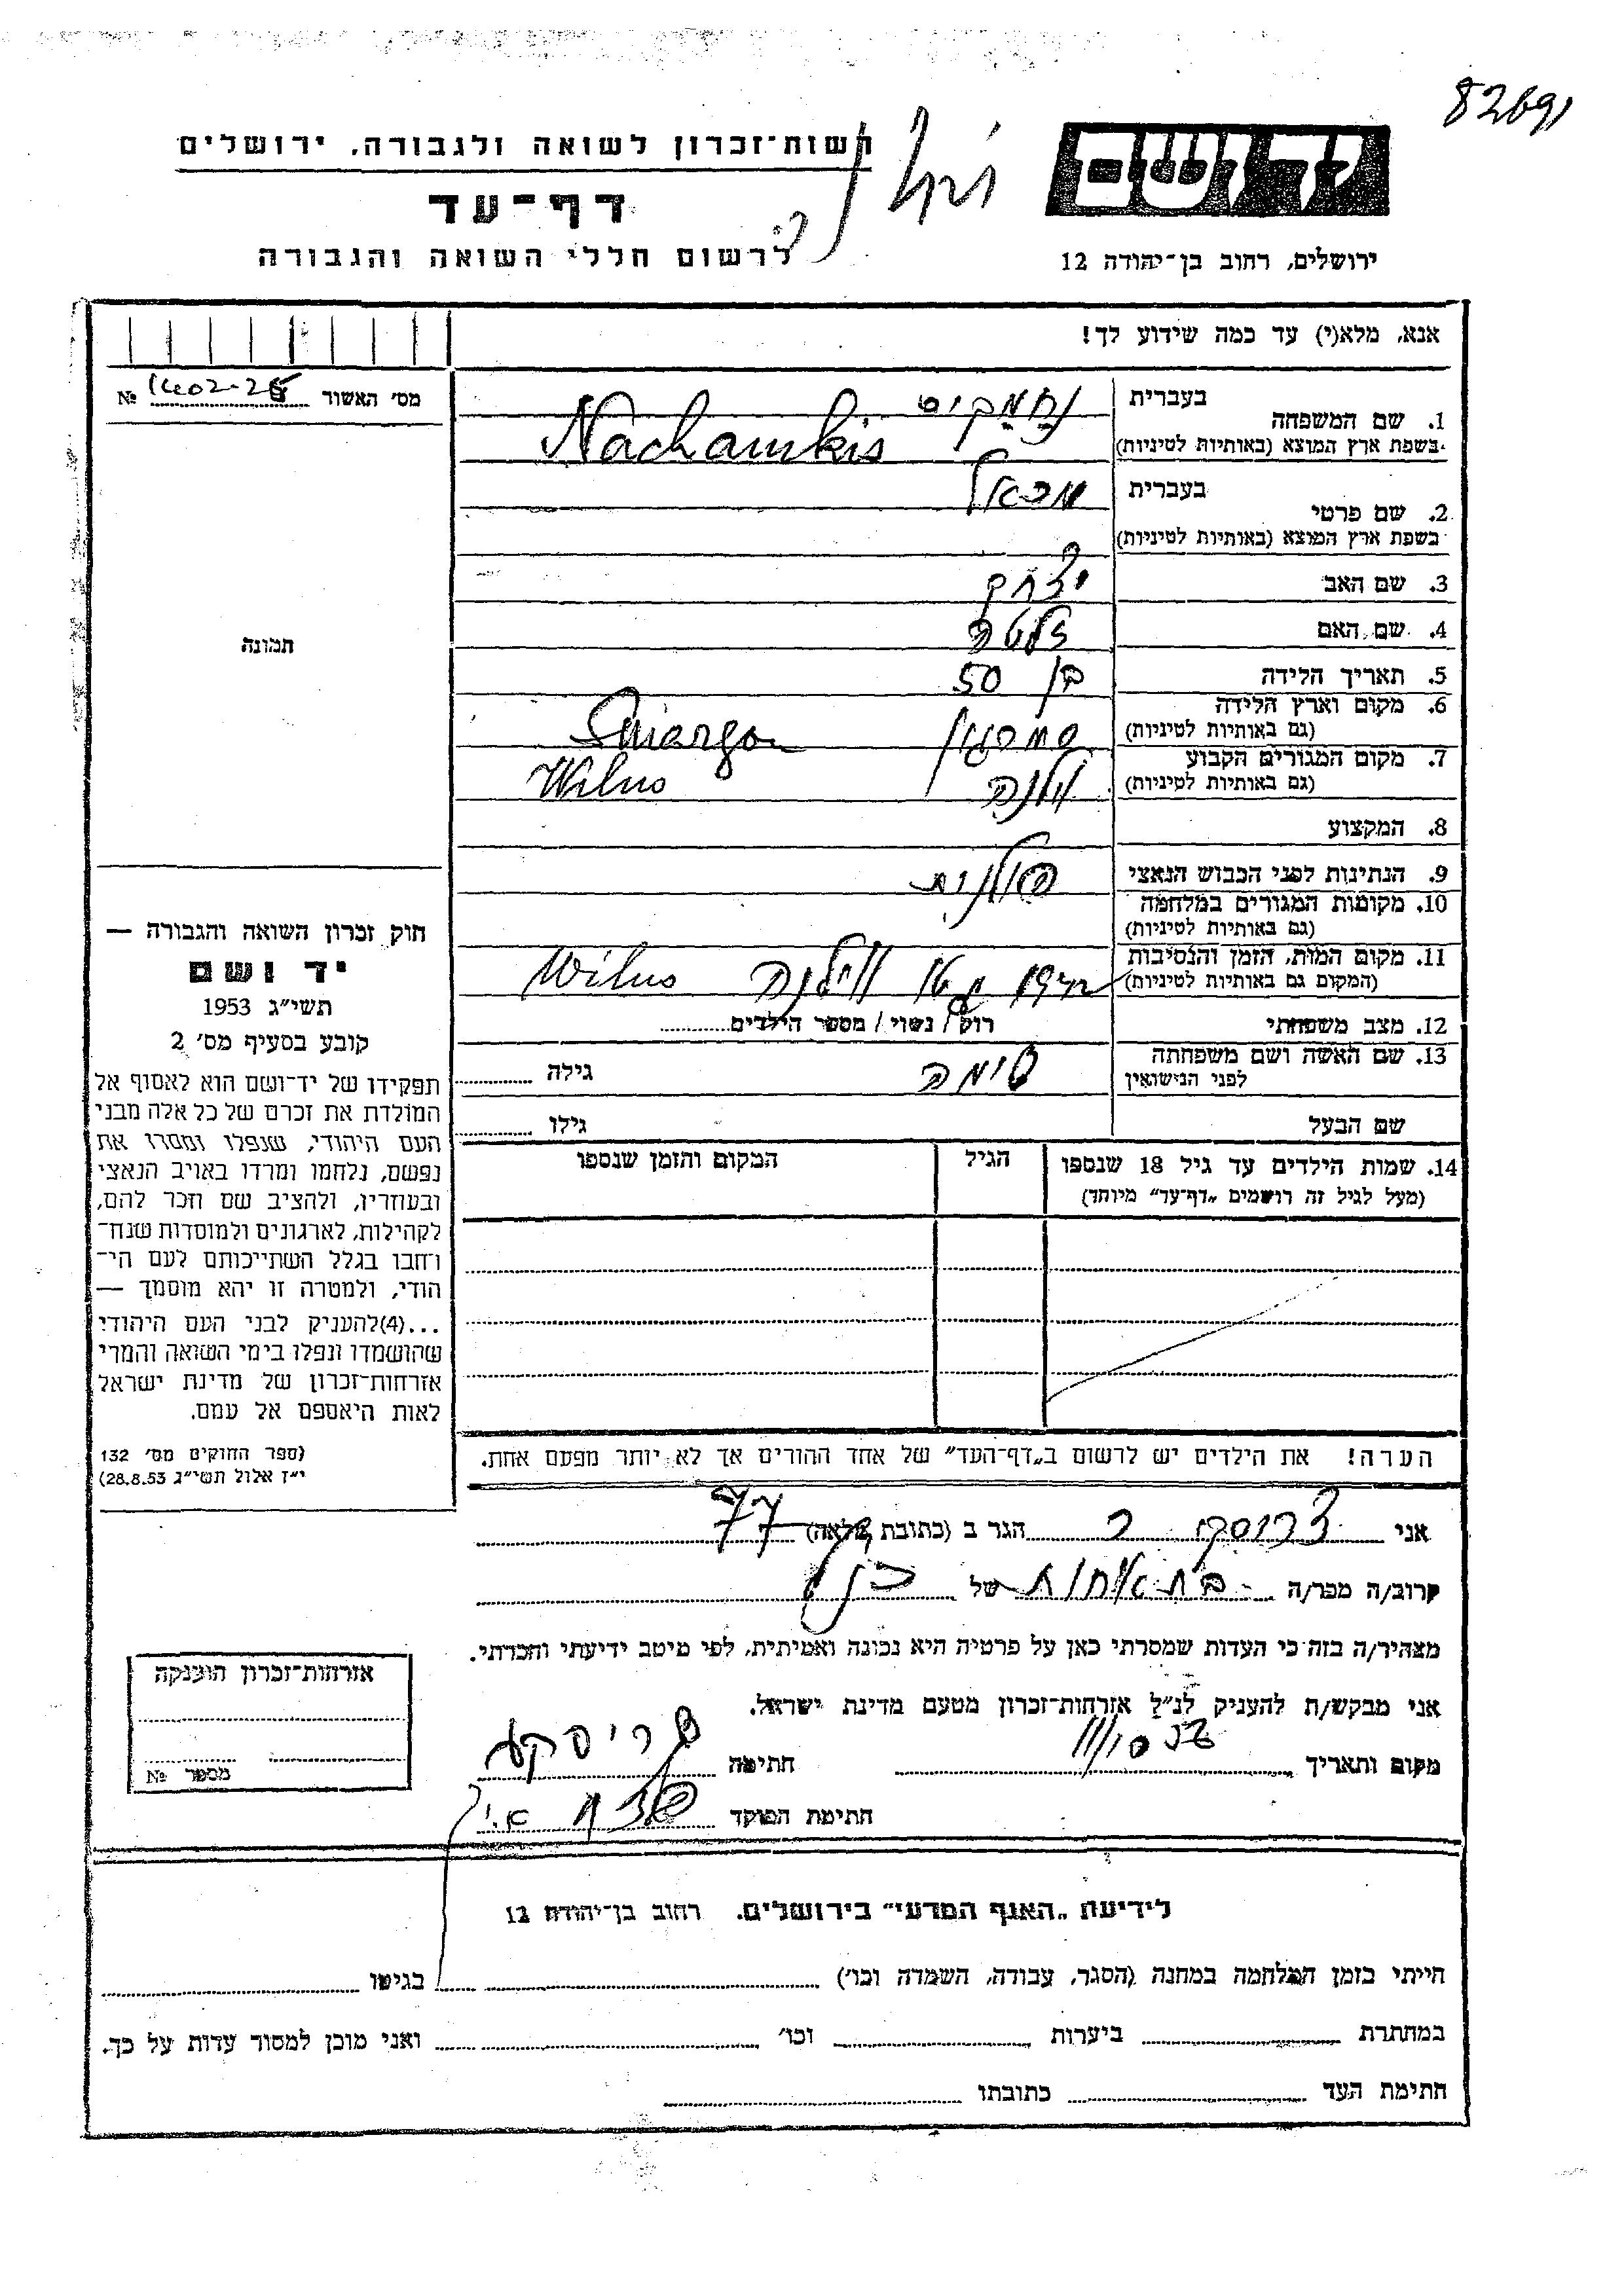 82691
יד ושם
רשות־זכרון לשואה ולגבורה, ירושלים
דף־עד
לרשום חללי השואה והגבורה
ירושלים, רחוב בן־יהודה 12
אנא, מלא(י) עד כמה שידוע לך!
מס' האשור № 1402-25
1. שם המשפחה
בעברית נחמקיס
בשפת ארץ המוצא (באותיות לטיניות) Nachamkis
2. שם פרטי
בעברית מכאל
בשפת ארץ המוצא (באותיות לטיניות)
3. שם האב יצחק
4. שם האם זלטה
5. תאריך הלידה בן 50
6. מקום וארץ הלידה
(גם באותיות לטיניות) סמרגון Smargon
7. מקום המגורים הקבוע
(גם באותיות לטיניות) וילנה Wilno
8. המקצוע
9. הנתינות לפני הכבוש הנאצי פולנית
10. מקומות המגורים במלחמה
(גם באותיות לטיניות)
11. מקום המות, הזמן והנסיבות
(המקום גם באותיות לטיניות) גטו וילנה Wilno
12. מצב משפחתי רווק / נשוי / מספר הילדים
13. שם האשה ושם משפחתה
לפני הנישואין סימה גילה
שם הבעל גילו
14. שמות הילדים עד גיל 18 שנספו
(מעל לגיל זה רושמים „דף־עד" מיוחד)
הגיל
המקום והזמן שנספו
הערה! את הילדים יש לרשום ב„דף־העד" של אחד ההורים אך לא יותר מפעם אחת.
תמונה
חוק זכרון השואה והגבורה —
יד ושם
תשי"ג 1953
קובע בסעיף מס' 2
תפקידו של יד־ושם הוא לאסוף אל
המולדת את זכרם של כל אלה מבני
העם היהודי, שנפלו ומסרו את
נפשם, נלחמו ומרדו באויב הנאצי
ובעוזריו, ולהציב שם וזכר להם,
לקהילות, לארגונים ולמוסדות שנח־
רבו בגלל השתייכותם לעם הי־
הודי, ולמטרה זו יהא מוסמך —
...(4)להעניק לבני העם היהודי
שהושמדו ונפלו בימי השואה והמרי
אזרחות־זכרון של מדינת ישראל
לאות היאספם אל עמם.
(ספר החוקים מס' 132
י"ז אלול תשי"ג 28.8.53)
אני הגר ב (כתובת מלאה) 77
קרוב/ה מכר/ה בת אחות של
מצהיר/ה בזה כי העדות שמסרתי כאן על פרטיה היא נכונה ואמיתית, לפי מיטב ידיעתי והכרתי.
אני מבקש/ת להעניק לנ"ל אזרחות־זכרון מטעם מדינת ישראל.
מקום ותאריך חתימה
חתימת הפוקד
אזרחות־זכרון הוענקה
מספר №
לידיעת „האגף המדעי" בירושלים. רחוב בן־יהודה 12
הייתי בזמן המלחמה במחנה (הסגר, עבודה, השמדה וכו') בגיטו
במחתרת ביערות וכו' ואני מוכן למסור עדות על כך.
חתימת העד כתובתו